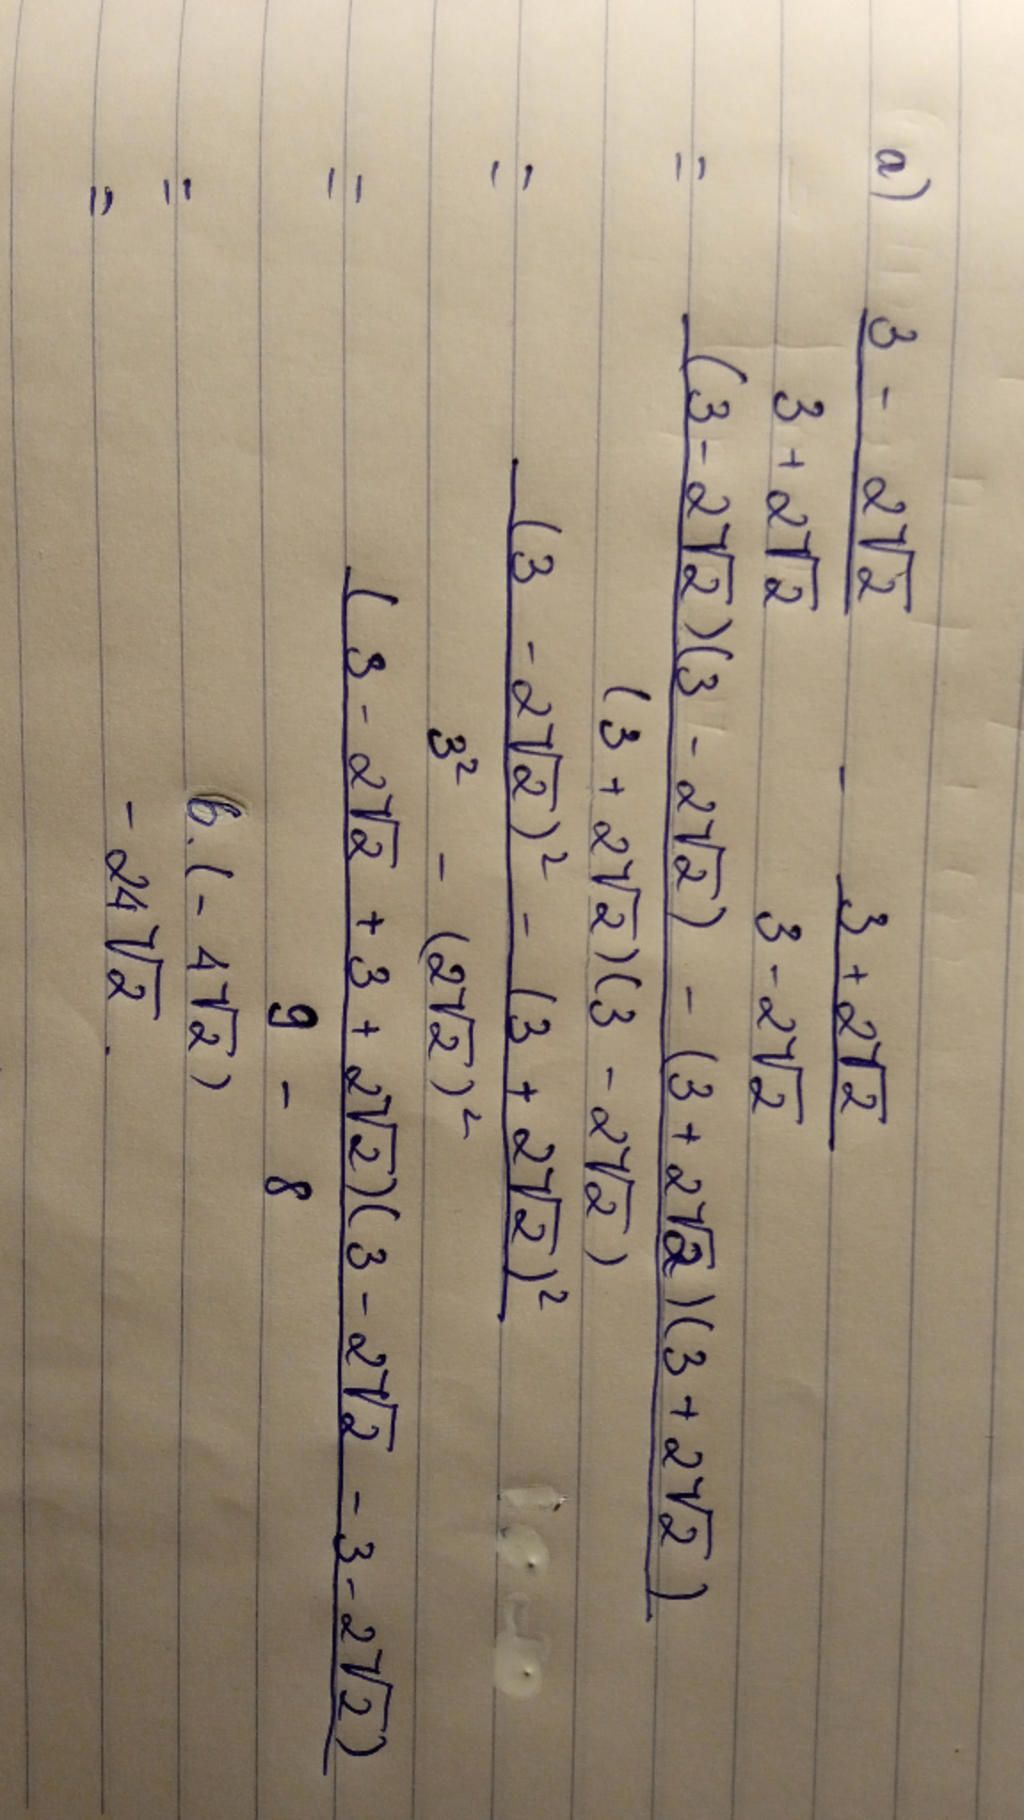 a) 3 - 2√2 / 3 + 2√2 - 3 + 2√2 / 3 - 2√2
= (3 - 2√2)(3 - 2√2) - (3 + 2√2)(3 + 2√2) / (3 + 2√2)(3 - 2√2)
= (3 - 2√2)² - (3 + 2√2)² / 3² - (2√2)²
= (3 - 2√2 + 3 + 2√2)(3 - 2√2 - 3 - 2√2) / 9 - 8
= 6.(- 4√2)
= - 24√2.